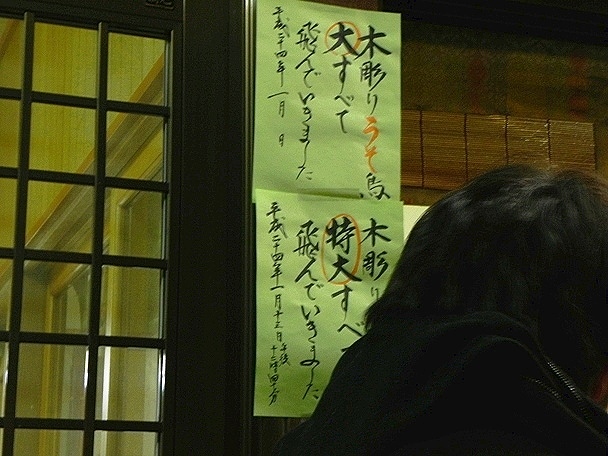 木彫りうそ鳥
大すべて
飛んでいきました
平成二十四年一月 日
木彫り
特大すべ
飛んでいきました
平成二十四年一月十三日午後
十二時四十分